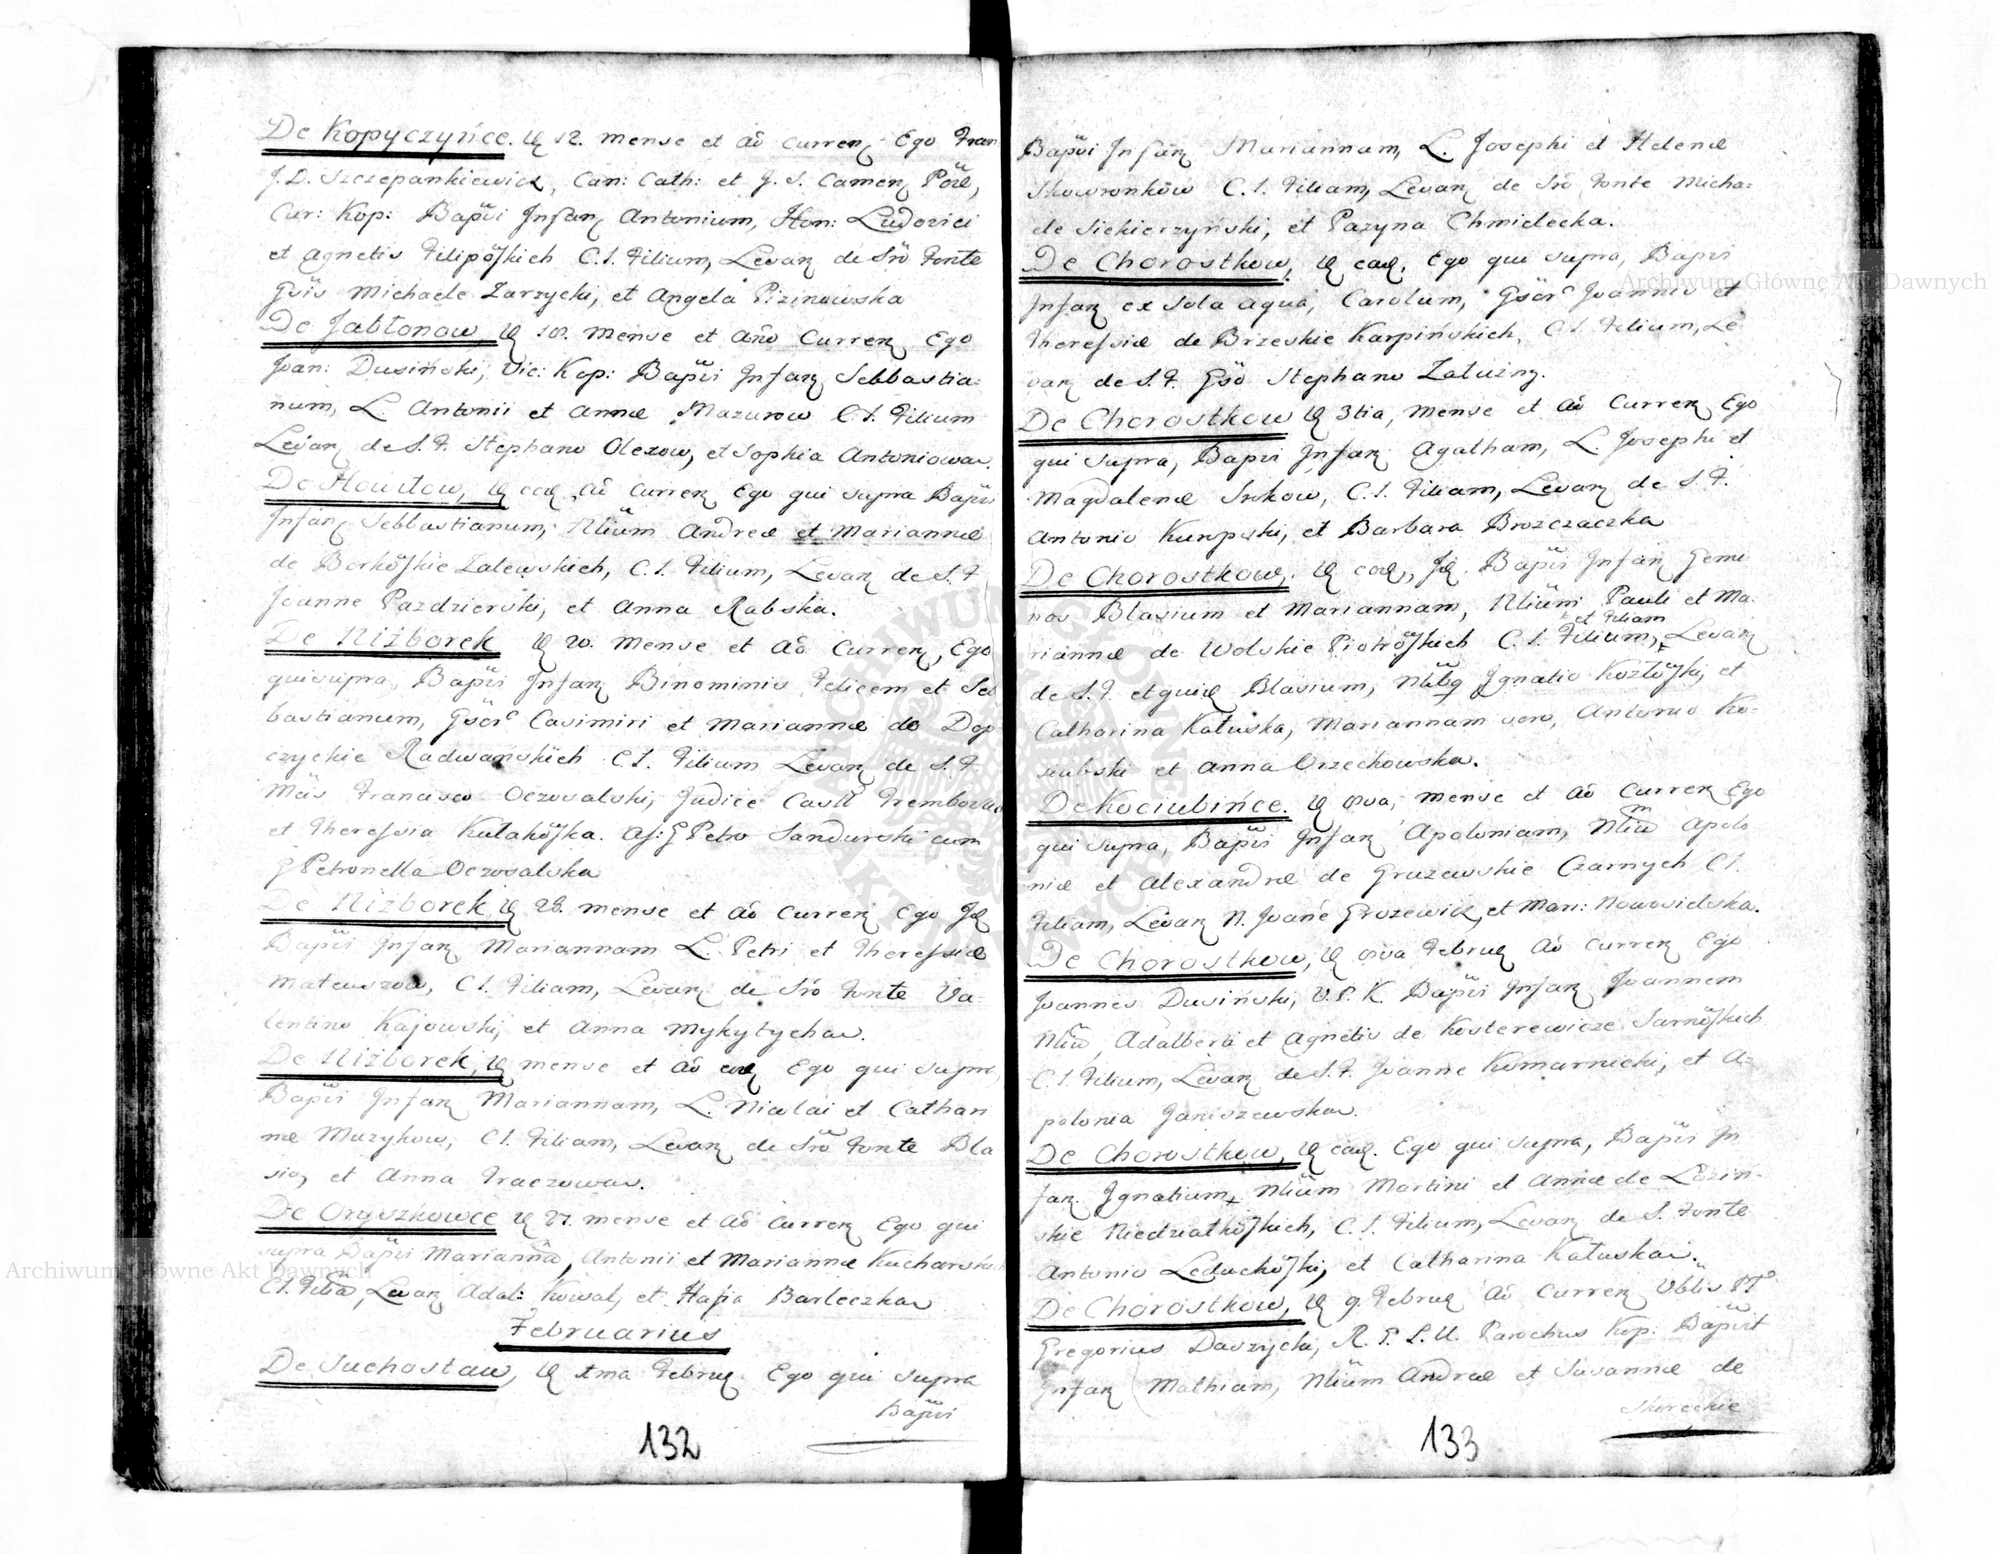 De Kopyczyńce. 12. mense et Aõ Curren. Ego Fran
J. D. Szczepankiewicz, Can: Cath: et Camen
Cur: Kop: Bapẗvi Infan Antonium, Hon: Ludovici
et Agnetis Filipõfkich C. I. Filium, Levan de Sr̃o Fonte
Michaele Zarzycki, et Angela Pizinowska
De Jabłonow 18. mense et Año Curren Ego
Joan: Dusiński, Vic: Kop: Bapẗvi Infan Sebbastia:
num, L. Antonii et Annæ Mazurow C. I. Filium
Levan de S. F. Stephano Olexow, et Sophia Antoniowa.
De Howiłow, Aõ Curren Ego qui supra Bapẗvi
Infan Sebbastianum, Andreæ et Mariannæ
de Zalewskich, C. I. Filium, Levan de S. F.
Joanne Pazdzierski, et Anna Rabska.
De Niżborek 20. mense et Aõ Curren, Ego
qui supra, Bapẗvi Infan Binominis Felicem et Seb
bastianum, Casimiri et Mariannæ de Dop
czyckie Radwańskich C. I. Filium Levan de S. F.
Francisco Oczosalski, Judice Trembovl
et Theressia Kułakõfka. Petro Sandurski cum
Petronella Oczosalska
De Niżborek 28. mense et Aõ Curren Ego
Bapẗvi Infan Mariannam L. Petri et Theressiæ
Mateuszow, C. I. Filiam, Levan de Sr̃o Fonte Va:
lentino Kajowski, et Anna Mykytycha.
De Niżborek, mense et Aõ Ego qui supra,
Bapẗvi Infan Mariannam, L. Nicolai et Cathari
næ Muzykow, C. I. Filiam, Levan de Sr̃o Fonte Bla
sio, et Anna Traczowa.
De Oryszkowce 27. mense et Aõ Curren Ego qui
supra Bapẗvi Mariannã, Antonii et Mariannæ Kucharski
C. I. Filiã, Levan Adal: Kowal, et Hapia Barleczka
Februarius
De Suchostaw, 1ma Ego qui supra
Bapẗvi
132
Bapẗvi Infan Mariannam, L. Josephi et Helenæ
Skowronkow C. I. Filiam, Levan de Sr̃o Fonte Micha:
ele Siekierzyński, et Pazyna Chmielecka.
De Chorostkow, Ego qui supra, Bapẗvi
Infan ex Sola aqua, Carolum, Joannis et
Theressiæ de Brzeskie Karpińskich, C. I. Filium, Le
van de S. F. Stephano Załuźny.
De Chorostkow 3tia, mense et Aõ Curren Ego
qui supra, Bapẗvi Infan Agatham, L. Josephi et
Magdalenæ Srokow, C. I. Filiam, Levan de S. F.
Antonio et Barbara Brozczaczka
De Chorostkow, Bapẗvi Infan Gemi
nos Blasium et Mariannam, Pauli et Ma:
et Filiam
riannæ de Wolskie Piotrõfkich C. I. Filium, Levan
de S. F. Blasium, Ignatio Kozłõfki, et
Catharina Kałuska, Mariannam vero, Antonio Ko:
ciubski et Anna Orzechowska.
De Kociubińce. 8va, mense et Aõ Curren Ego
qui supra, Bapẗvi Infan Apoloniam, Apolo
niæ et Alexandræ de Gruzewskie Czarnych C. I.
Filiam, Levan N. Joañe Grozewicz, et Mari: Nowosielska.
De Chorostkow, 8va Aõ Curren Ego
Joannes Dusiński, V. P. K. Bapẗvi Infan Joannem
Adalberti et Agnetis de Kosterewicze Sarnõfkich
C. I. Filium, Levan de S. F. Joanne Komarnicki, et A:
polonia Janiszewska.
De Chorostkow, Ego qui supra, Bapẗvi In
fan Ignatium, Martini et Annæ de Lozin:
skie Niedziałkõfkich, C. I. Filium, Levan de S. Fonte
Antonio Leduchõfki, et Catharina Kałuska.
De Chorostkow, 9. Aõ Curren
Gregorius Daszycki, Parochus Kop: Bapẗvit
Infan Mathiam, Andreæ et Susannæ de
Skreckie
133